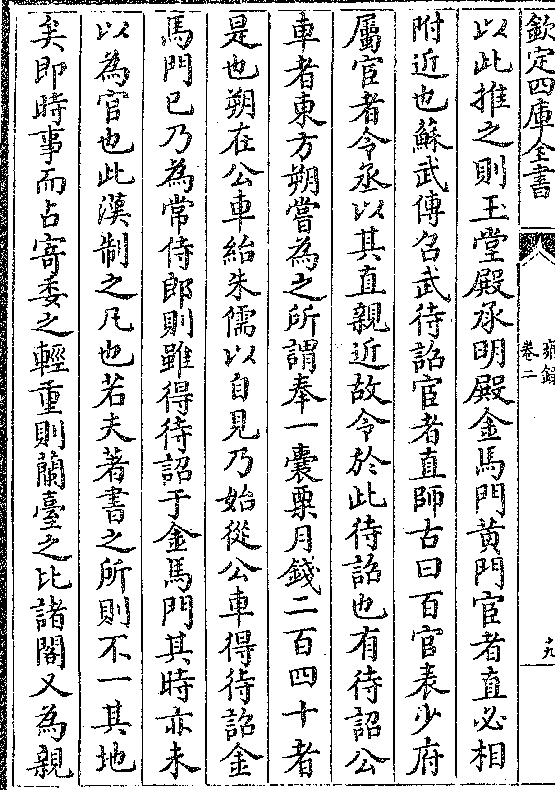 欽定四庫全書
雍録
卷二
十九
以此推之則玉堂殿承明殿金馬門黄門宦者直必相
附近也蘇武傳召武待詔宦者直師古曰百官表少府
屬官者令丞以其直親近故令於此待詔也有待詔公
車者東方朔嘗為之所謂奉一囊粟月錢二百四十者
是也朔在公車紿朱儒以自見乃始從公車得待詔金
馬門已乃為常侍郎則雖得待詔于金馬門其時亦未
以為官也此漢制之凡也若夫著書之所則不一其地
矣即時事而占寄委之輕重則蘭臺之比諸閣又為親